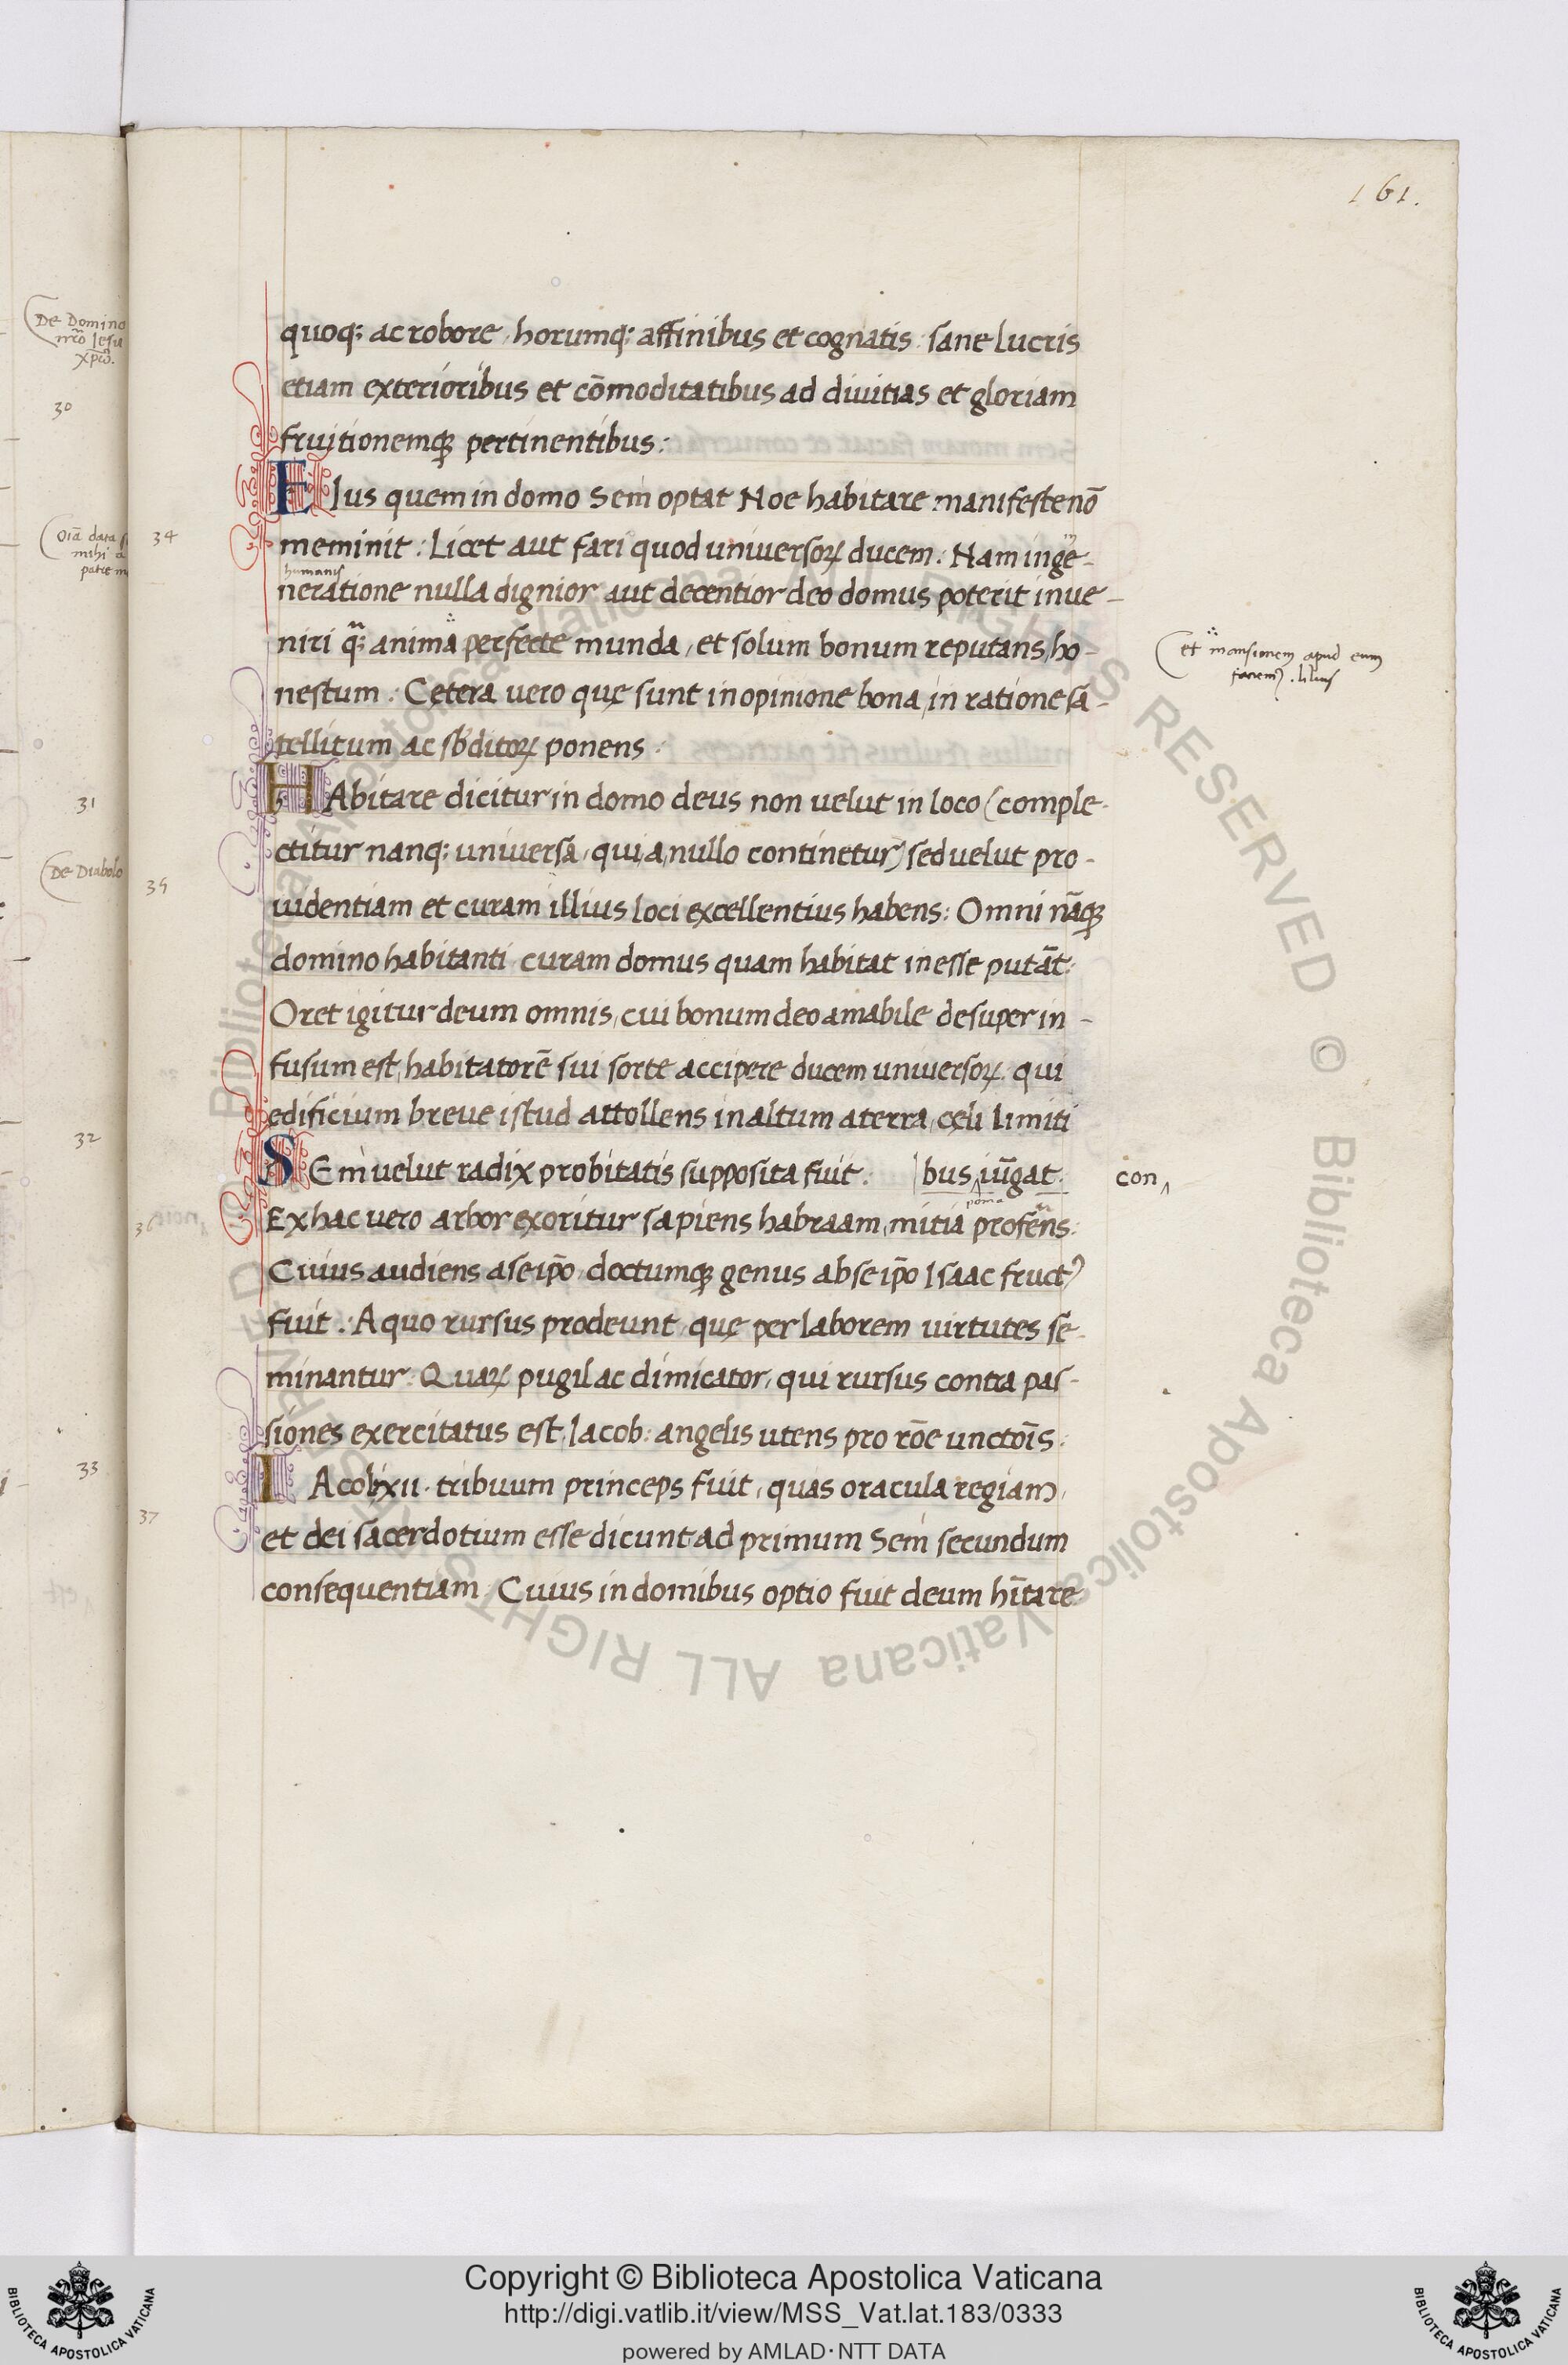 161.
De Domino
nr̄o Iesu
xp̄o.
30
Oīa data s
mihi a
patre m
31
De Diabolo
32
33
34
35
36
37
quoq; ac robore, horumq; affinibus et cognatis: sane lucris
etiam exterioribus et cōmoditatibus ad diuitias et gloriam
fruitionemqꝫ pertinentibus:
EIus quem in domo Sem optat Noe habitare manifeste nō
meminit: Licet aut fari quod uniuersoꝝ ducem: Nam in ge-
humanis
neratione nulla dignior aut decentior deo domus poterit inue-
niri q̃; anima perfecte munda, et solum bonum reputans, ho-
nestum: Cetera uero quę sunt in opinione bona, in ratione sa-
tellitum ac sb̄ditoꝝ ponens:
et mansionem apud eum
faciemꝰ.
HAbitare dicitur in domo deus non uelut in loco (comple-
ctitur nanq; uniuersa, qui a nullo continetur) sed uelut pro-
uidentiam et curam illius loci excellentius habens: Omni nāqꝫ
domino habitanti curam domus quam habitat inesse putāt:
Oret igitur deum omnis, cui bonum deo amabile desuper in-
fusum est, habitatorē sui sorte accipere ducem uniuersoꝝ. qui
edificium breue istud attollens in altum a terra, cęli limiti
SEm uelut radix probitatis supposita fuit: bus iūgat:
con
poma
Ex hac uero arbor exoritur sapiens habraam, mitia profēns:
Cuius audiens a se ip̄o, doctumqꝫ genus ab se ip̄o Isaac fructꝰ
fuit: A quo rursus prodeunt, quę per laborem uirtutes se-
minantur: Quaꝝ pugil ac dimicator, qui rursus contra pas-
siones exercitatus est, Iacob: angelis utens pro rōe unctōīs:
IAcob xii. tribuum princeps fuit, quas oracula regiam,
et dei sacerdotium esse dicunt ad primum Sem secundum
consequentiam: Cuius in domibus optio fuit deum hītare
© Biblioteca Apostolica Vaticana ALL RIGHTS RESERVED
Copyright © Biblioteca Apostolica Vaticana
http://digi.vatlib.it/view/MSS_Vat.lat.183/0333
powered by AMLAD·NTT DATA
BIBLIOTECA APOSTOLICA VATICANA
BIBLIOTECA APOSTOLICA VATICANA